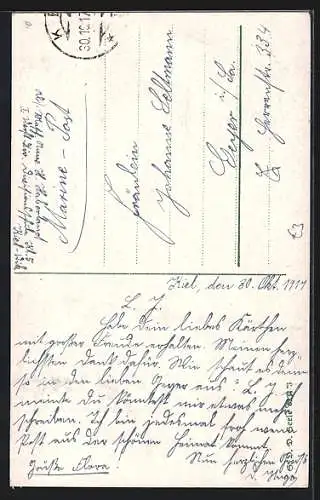 30.10.17
Marine-Post
Fräulein
Johanne Sellmann
Geyer i/Sa.
Herrenstr. 334
Kiel, den 30. Okt. 1917
L. J.
Habe Dein liebes Kärtchen
mit großer Freude erhalten. Meinen herz-
lichsten Dank dafür. Wie schaut es denn
so in den lieben Geyer aus? L. J. ich
meinte du könntest mir etwas mehr
schreiben. Ich bin jedesmal froh wenn
Post aus der schönen Heimat kommt.
Nun herzlichen Gruß
Grüße Klara!